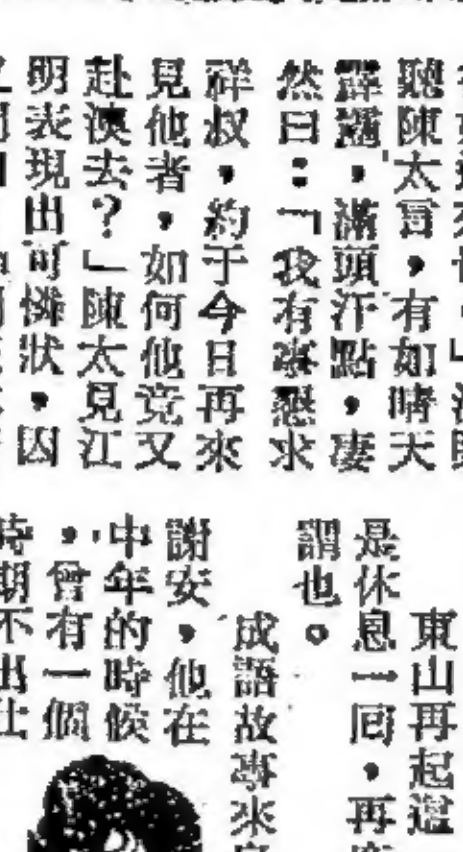 聽陳太言，有如晴天
霹靂，滿頭汗點，凄
然曰：「我有事懇求
祥叔，約于今日再來
見他者，如何他竟又
赴澳去？」陳太見江
明表現出可憐狀，因
東山再起
是休息一囘，再
謂也。
成語故事來
謝安，他在
中年的時候
，曾有一個
時期不出仕